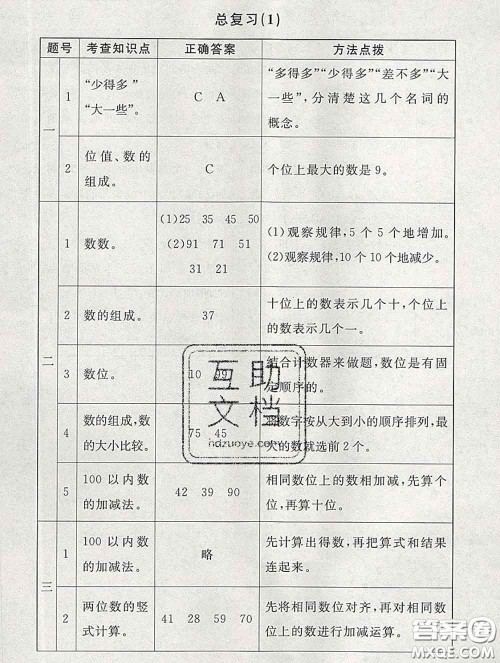 总复习(1)
题号 考查知识点 正确答案 方法点拨
一
1 “少得多” “大一些”。 C A “多得多”“少得多”“差不多”“大
一些”,分清楚这几个名词的
概念。
2 位值、数的 组成。 C 个位上最大的数是9。
二
1 数数。 (1)25 35 45 50 (1)观察规律,5个5个地增加。
(2)91 71 51 (2)观察规律,10个10个地减少。
31 21
2 数的组成。 37 十位上的数表示几个十,个位上
的数表示几个一。
3 数位。 10 99 结合计数器来做题,数位是有固
定顺序的。
4 数的组成,数 的大小比较。 75 45 数字按从大到小的顺序排列,最
大的数就选前2个。
5 100以内数 的加减法。 42 39 90 相同数位上的数相加减,先算个
位,再算十位。
三
1 100以内数 的加减法。 略 先计算出得数,再把算式和结果
连起来。
2 两位数的竖 式计算。 41 28 59 70 先将相同数位对齐,再对相同数
位上的数进行加减运算。
互助
文档
hdzuoye.com
答案圈
MXQE.COM